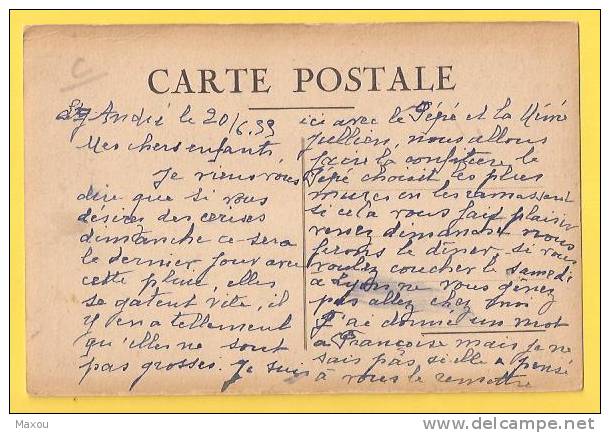 CARTE POSTALE
St André le 20/6.39
Mes chers enfants,
Je viens vous
dire que si vous
désirez des cerises
dimanche ce sera
le dernier jour avec
cette pluie, elles
se gatent vite, il
y en a tellement
qu'elles ne sont
pas grosses. Je suis
ici avec le Pépé et la Mémé
Jullien, nous allons
faire la confiture le
Pépé choisit les plus
mures en les ramassant
si cela vous fait plaisir
venez dimanche nous
ferons le diner, si vous
voulez coucher le samedi
a Lyon ne vous gênez
pas allez chez moi
J'ai donné un mot
a Françoise mais je ne
sais pas si elle a pensé
à vous le remettre
Maxou
www.delcampe.net